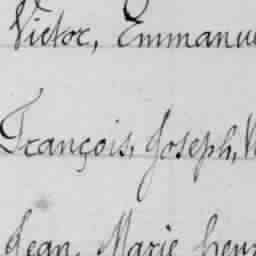 Victor, Emmanue
François, Joseph, V
Jean, Marie, henr